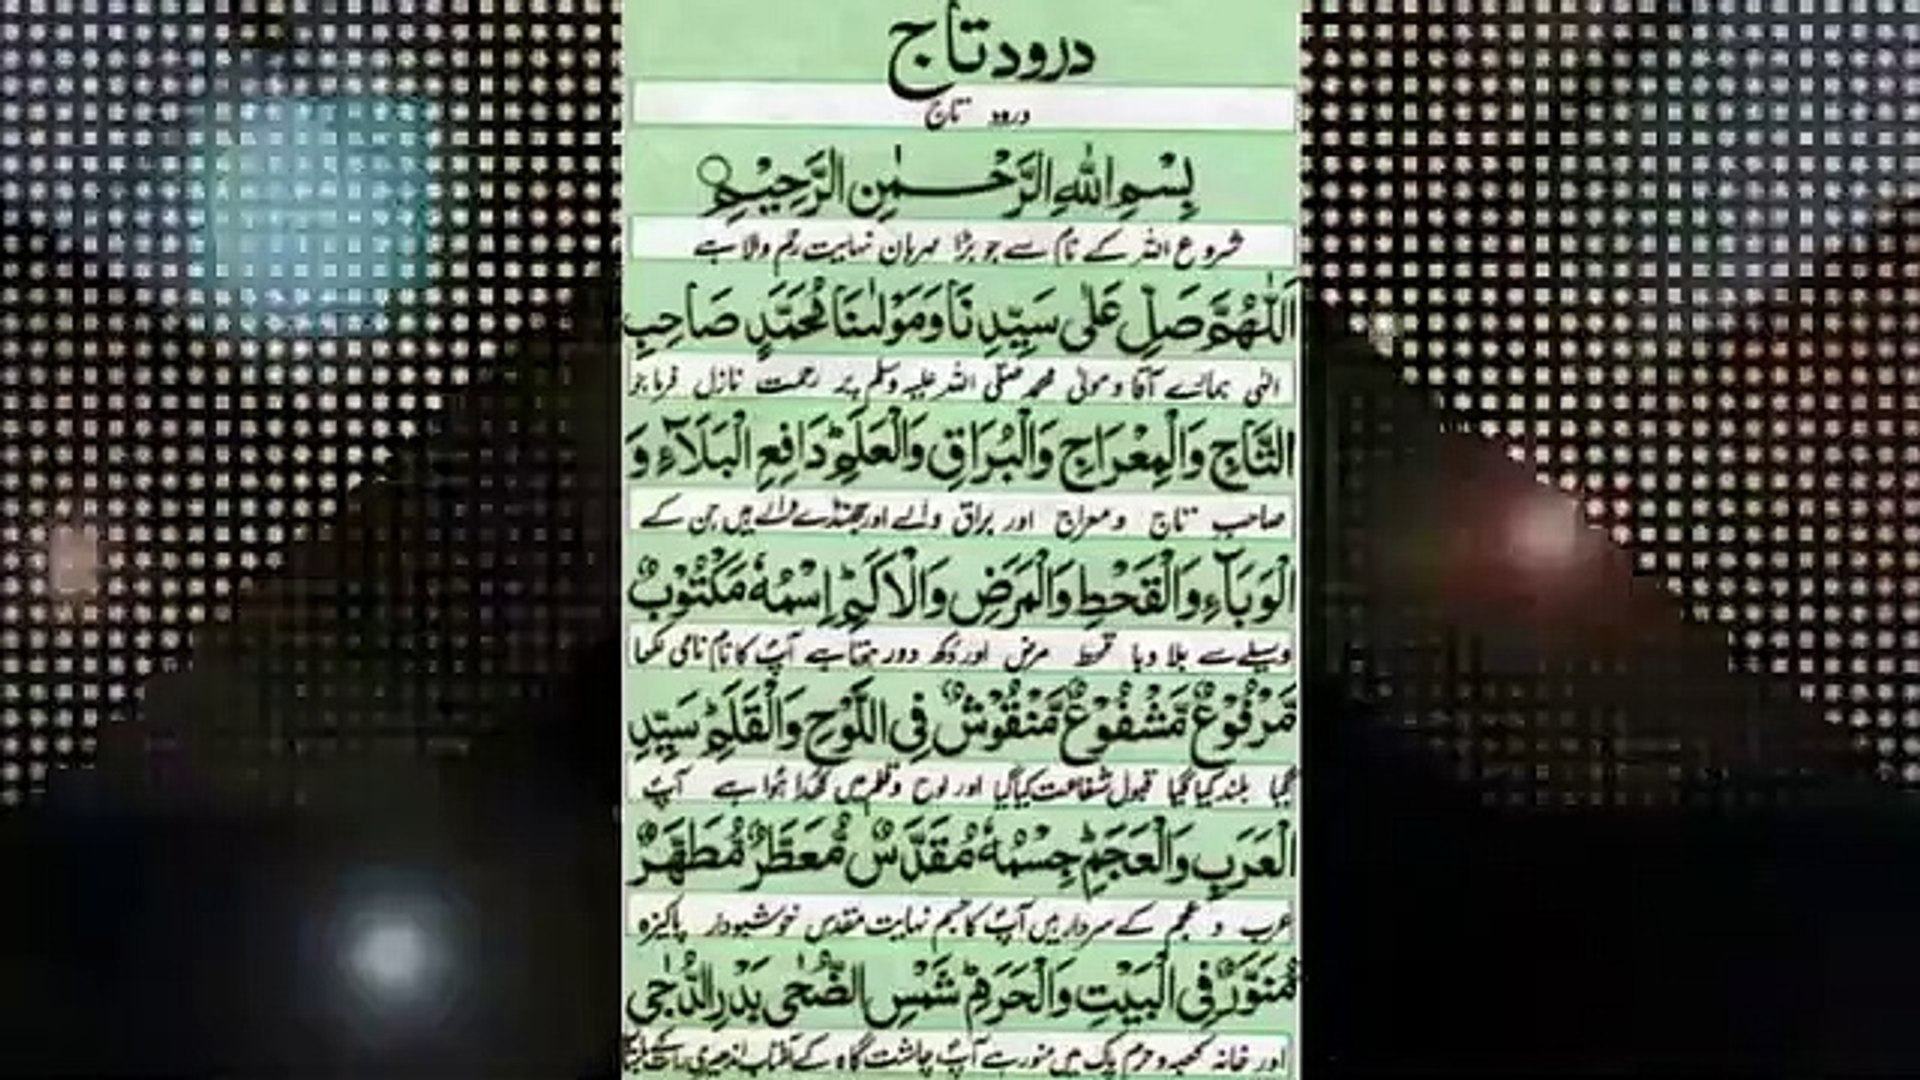 درود تاج
درود تاج
بِسْمِ اللّٰهِ الرَّحْمٰنِ الرَّحِيْمِ
شروع اللہ کے نام سے جو بڑا مہربان نہایت رحم والا ہے
اَللّٰهُمَّ صَلِّ عَلٰى سَيِّدِنَا وَمَوْلٰىنَا مُحَمَّدٍ صَاحِبِ
الٰہی ہمارے آقا و مولیٰ محمد صلی اللہ علیہ وسلم پر رحمت نازل فرما جو
التَّاجِ وَالْمِعْرَاجِ وَالْبُرَاقِ وَالْعَلَمِ ؕ دَافِعِ الْبَلَآءِ وَ
صاحب تاج و معراج اور براق والے اور جھنڈے والے ہیں جن کے
الْوَبَآءِ وَالْقَحْطِ وَالْمَرَضِ وَالْاَلَمِ ؕ اِسْمُهٗ مَكْتُوْبٌ
وسیلے سے بلا وبا قحط مرض اور دکھ دور ہوتا ہے آپؐ کا نام نامی لکھا
مَّرْفُوْعٌ مَّشْفُوْعٌ مَّنْقُوْشٌ فِي اللَّوْحِ وَالْقَلَمِ ؕ سَيِّدِ
گیا بلند کیا گیا قبول شفاعت کیا گیا اور لوح و قلم میں کھدا ہوا ہے آپؐ
الْعَرَبِ وَالْعَجَمِ ؕ جِسْمُهٗ مُقَدَّسٌ مُّعَطَّرٌ مُّطَهَّرٌ
عرب و عجم کے سردار ہیں آپؐ کا جسم نہایت مقدس خوشبودار پاکیزہ
مُّنَوَّرٌ فِي الْبَيْتِ وَالْحَرَمِ ؕ شَمْسِ الضُّحٰى بَدْرِ الدُّجٰى
اور خانہ کعبہ و حرم پاک میں منور ہے آپؐ چاشت گاہ کے آفتاب اندھیری رات کے